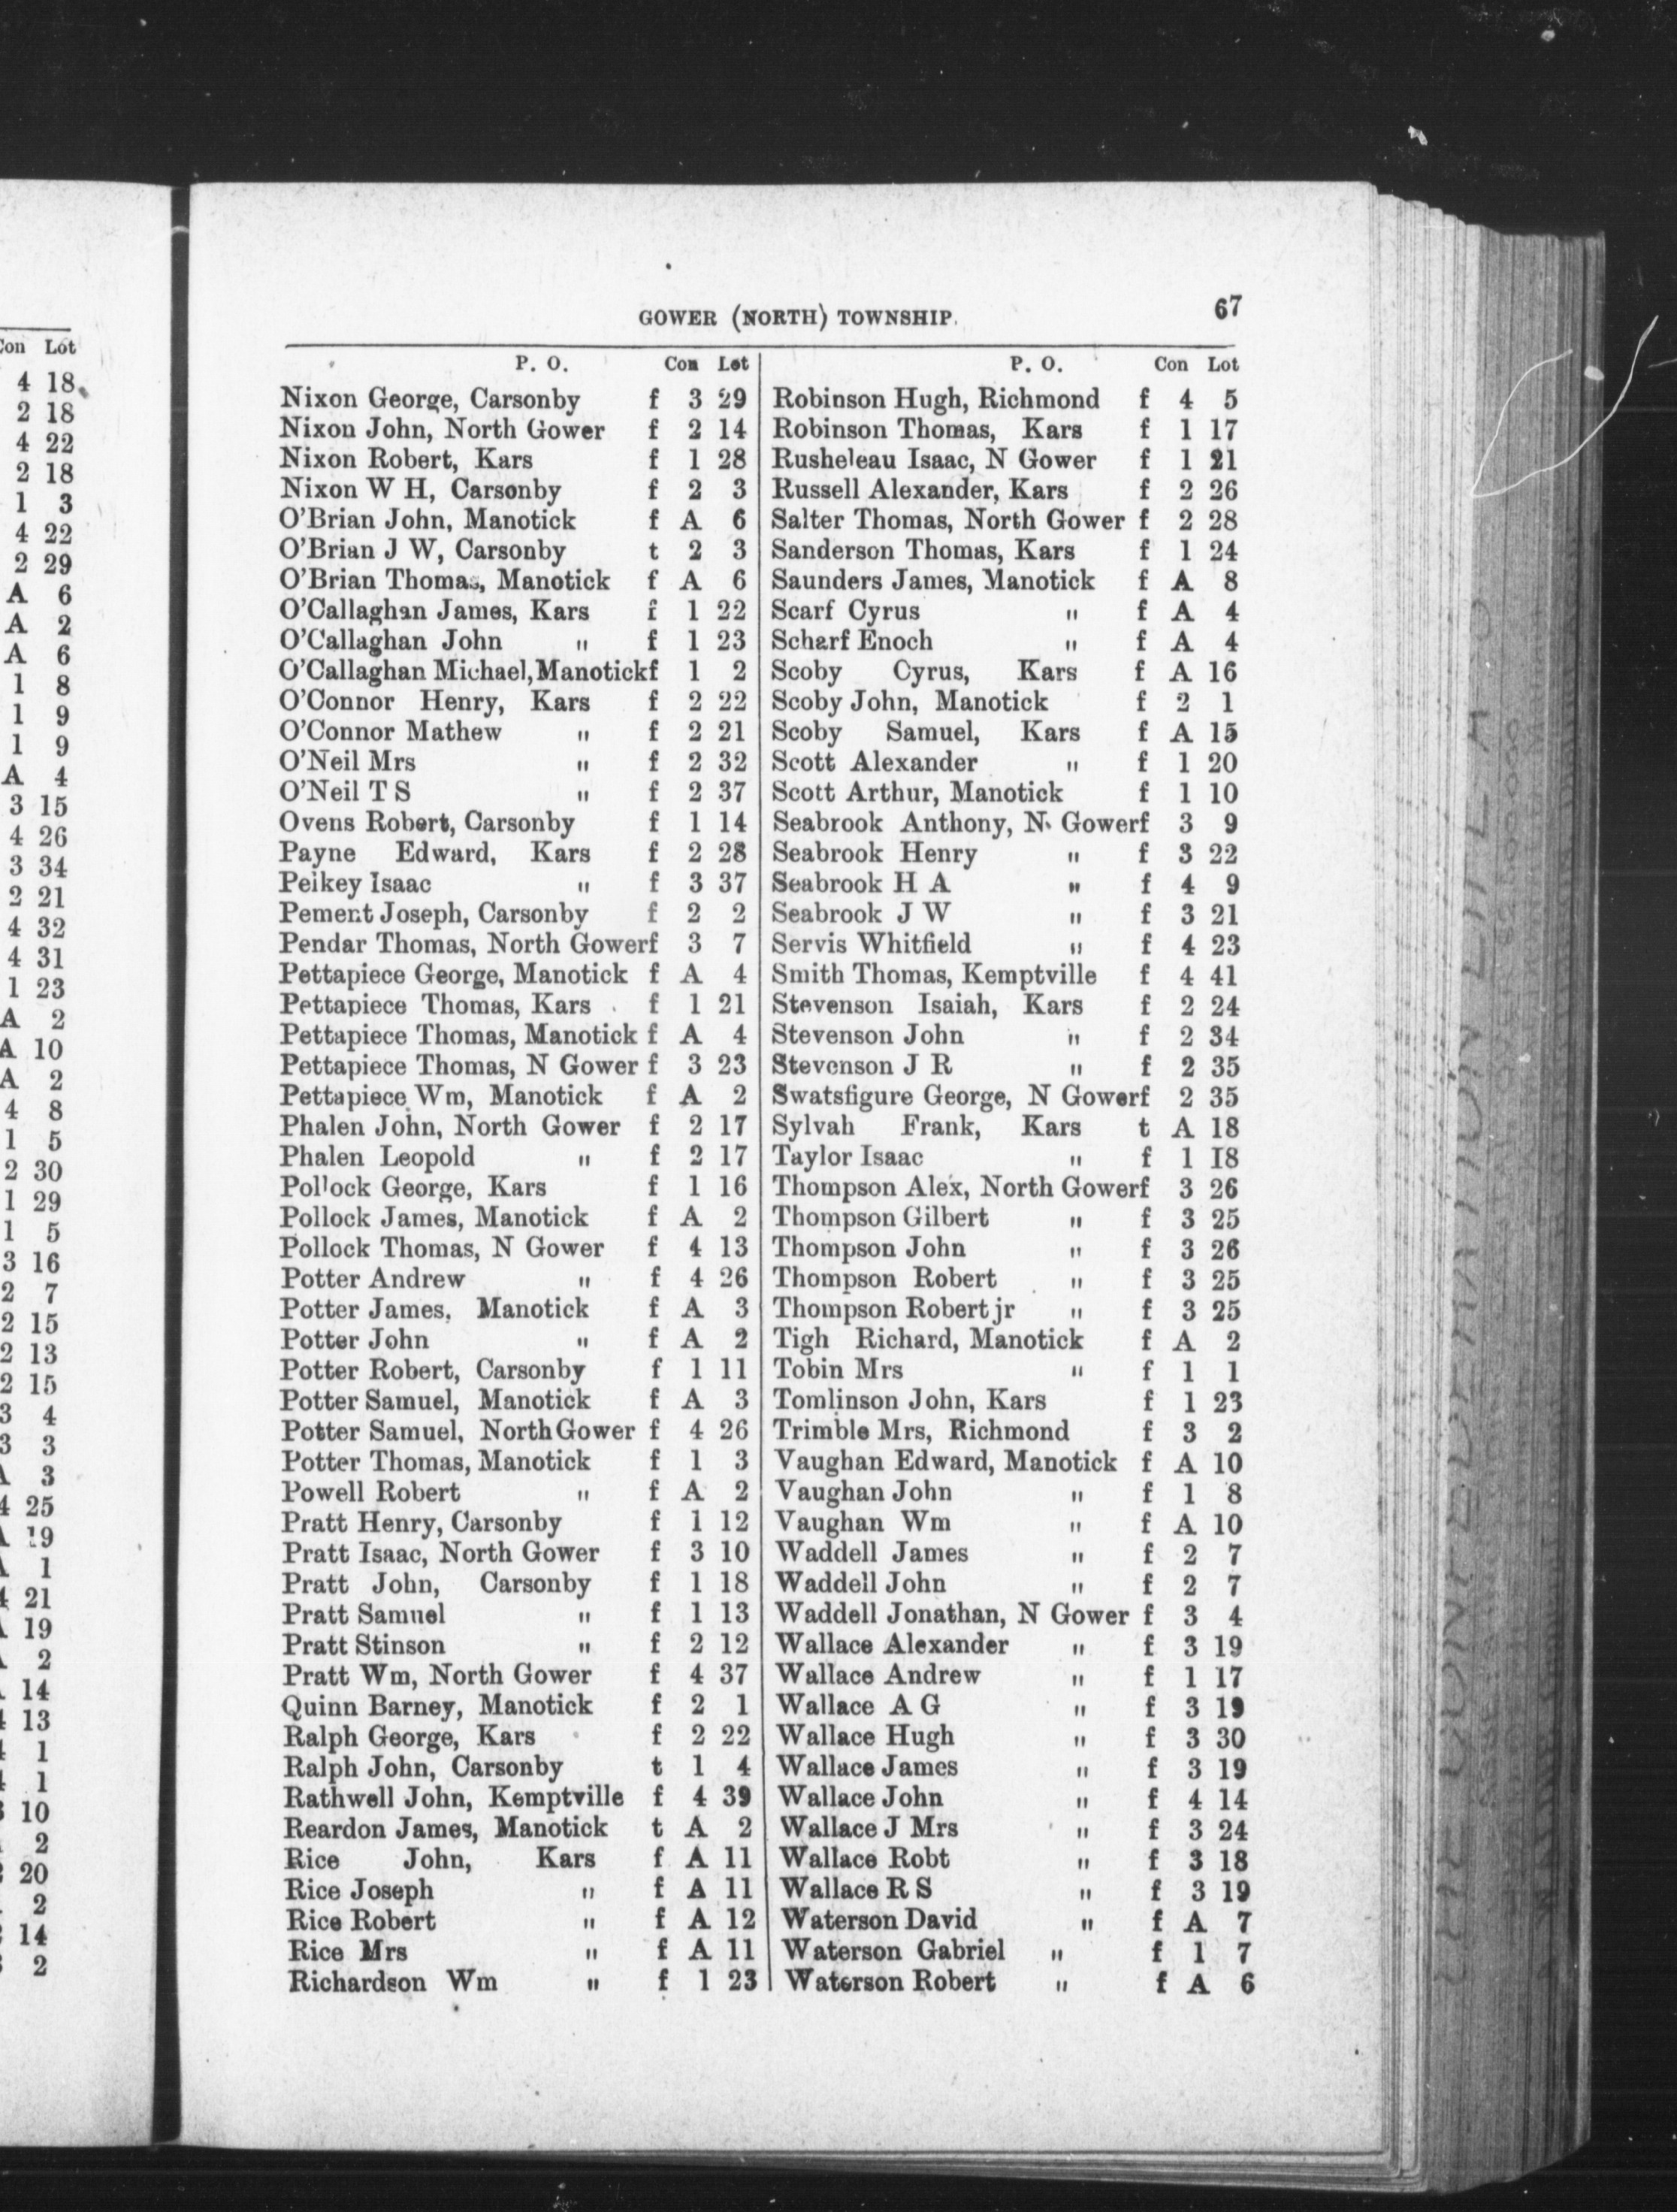 Con Lot
4 18
2 18
4 22
2 18
1 3
4 22
2 29
A 6
A 2
A 6
1 8
1 9
1 9
A 4
3 15
4 26
3 34
2 21
4 32
4 31
1 23
A 2
A 10
A 2
4 8
1 5
2 30
1 29
1 5
3 16
2 7
2 15
2 13
2 15
3 4
3 3
3
4 25
19
1
21
19
2
14
13
1
1
10
2
20
2
14
2
GOWER (NORTH) TOWNSHIP. 67
P. O. Con Lot
Nixon George, Carsonby f 3 29
Nixon John, North Gower f 2 14
Nixon Robert, Kars f 1 28
Nixon W H, Carsonby f 2 3
O'Brian John, Manotick f A 6
O'Brian J W, Carsonby t 2 3
O'Brian Thomas, Manotick f A 6
O'Callaghan James, Kars f 1 22
O'Callaghan John " f 1 23
O'Callaghan Michael, Manotick f 1 2
O'Connor Henry, Kars f 2 22
O'Connor Mathew " f 2 21
O'Neil Mrs " f 2 32
O'Neil T S " f 2 37
Ovens Robert, Carsonby f 1 14
Payne Edward, Kars f 2 28
Peikey Isaac " f 3 37
Pement Joseph, Carsonby f 2 2
Pendar Thomas, North Gower f 3 7
Pettapiece George, Manotick f A 4
Pettapiece Thomas, Kars f 1 21
Pettapiece Thomas, Manotick f A 4
Pettapiece Thomas, N Gower f 3 23
Pettapiece Wm, Manotick f A 2
Phalen John, North Gower f 2 17
Phalen Leopold " f 2 17
Pollock George, Kars f 1 16
Pollock James, Manotick f A 2
Pollock Thomas, N Gower f 4 13
Potter Andrew " f 4 26
Potter James, Manotick f A 3
Potter John " f A 2
Potter Robert, Carsonby f 1 11
Potter Samuel, Manotick f A 3
Potter Samuel, North Gower f 4 26
Potter Thomas, Manotick f 1 3
Powell Robert " f A 2
Pratt Henry, Carsonby f 1 12
Pratt Isaac, North Gower f 3 10
Pratt John, Carsonby f 1 18
Pratt Samuel " f 1 13
Pratt Stinson " f 2 12
Pratt Wm, North Gower f 4 37
Quinn Barney, Manotick f 2 1
Ralph George, Kars f 2 22
Ralph John, Carsonby t 1 4
Rathwell John, Kemptville f 4 39
Reardon James, Manotick t A 2
Rice John, Kars f A 11
Rice Joseph " f A 11
Rice Robert " f A 12
Rice Mrs " f A 11
Richardson Wm " f 1 23
P. O. Con Lot
Robinson Hugh, Richmond f 4 5
Robinson Thomas, Kars f 1 17
Rusheleau Isaac, N Gower f 1 21
Russell Alexander, Kars f 2 26
Salter Thomas, North Gower f 2 28
Sanderson Thomas, Kars f 1 24
Saunders James, Manotick f A 8
Scarf Cyrus " f A 4
Scharf Enoch " f A 4
Scoby Cyrus, Kars f A 16
Scoby John, Manotick f 2 1
Scoby Samuel, Kars f A 15
Scott Alexander " f 1 20
Scott Arthur, Manotick f 1 10
Seabrook Anthony, N. Gower f 3 9
Seabrook Henry " f 3 22
Seabrook H A " f 4 9
Seabrook J W " f 3 21
Servis Whitfield " f 4 23
Smith Thomas, Kemptville f 4 41
Stevenson Isaiah, Kars f 2 24
Stevenson John " f 2 34
Stevenson J R " f 2 35
Swatsfigure George, N Gower f 2 35
Sylvah Frank, Kars t A 18
Taylor Isaac " f 1 18
Thompson Alex, North Gower f 3 26
Thompson Gilbert " f 3 25
Thompson John " f 3 26
Thompson Robert " f 3 25
Thompson Robert jr " f 3 25
Tigh Richard, Manotick f A 2
Tobin Mrs " f 1 1
Tomlinson John, Kars f 1 23
Trimble Mrs, Richmond f 3 2
Vaughan Edward, Manotick f A 10
Vaughan John " f 1 8
Vaughan Wm " f A 10
Waddell James " f 2 7
Waddell John " f 2 7
Waddell Jonathan, N Gower f 3 4
Wallace Alexander " f 3 19
Wallace Andrew " f 1 17
Wallace A G " f 3 19
Wallace Hugh " f 3 30
Wallace James " f 3 19
Wallace John " f 4 14
Wallace J Mrs " f 3 24
Wallace Robt " f 3 18
Wallace R S " f 3 19
Waterson David " f A 7
Waterson Gabriel " f 1 7
Waterson Robert " f A 6